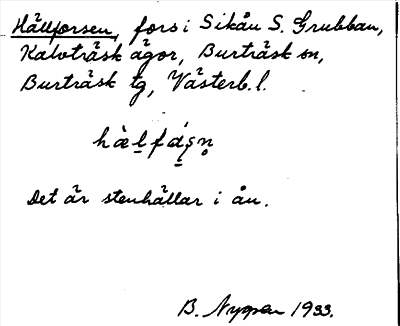 Hällforsen, fors i Sikån S. Grubban,
Kalvträsk ägor, Burträsk sn,
Burträsk tg, Västerb. l.
Det är stenhällar i ån.
B. Nygren 1933.